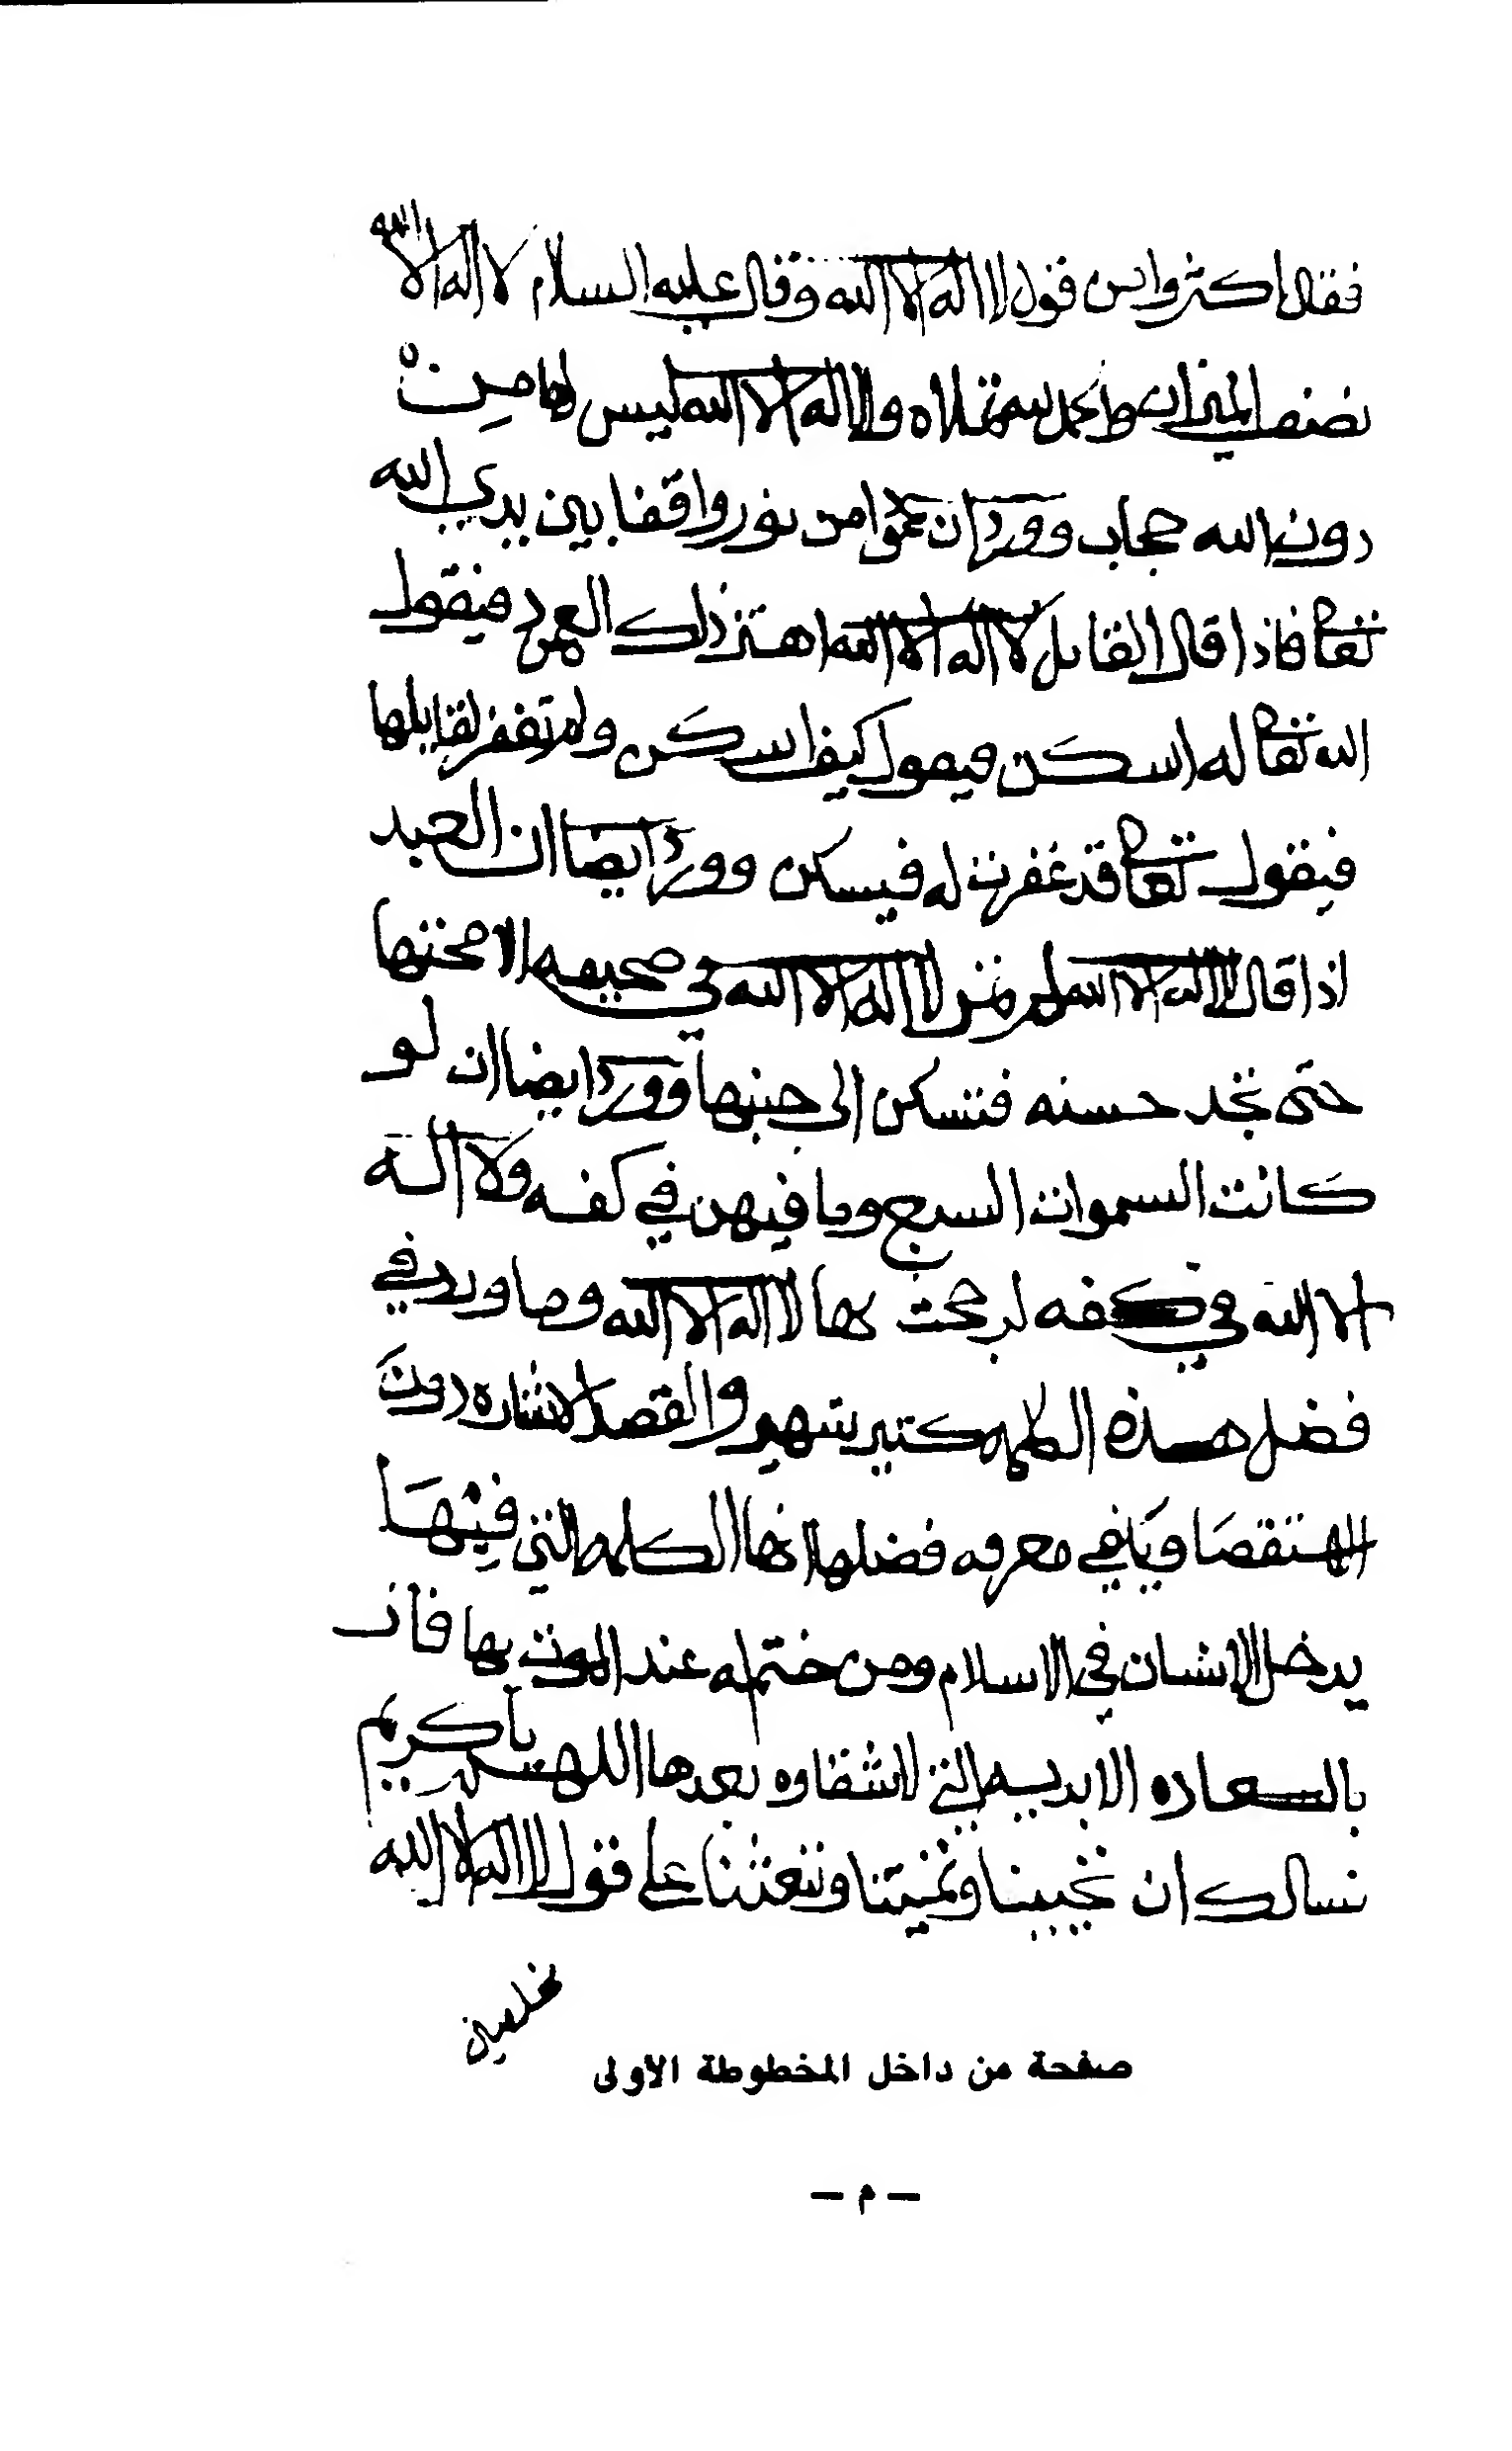 فقال اكثروا من قول لا اله الا الله وقال عليه السلام لا اله الا الله
نصف الميزان والحمد لله تملاه ولا اله الا الله ليس لها من
دون الله حجاب وورد ان عمودا من نور واقفا بين يدي الله
تعالى فاذا قال القايل لا اله الا الله اهتز ذلك العمود فيقول
الله تعالى له اسكن فيقول كيف اسكن ولم تغفر لقايلها
فيقول تعالى قد غفرت له فيسكن وورد ايضا ان العبد
اذا قال لا اله الا الله لم تمر لا اله الا الله في صحيفه الا محتها
حتى تجد حسنه فتسكن الى جنبها وورد ايضا ان لو
كانت السموات السبع وما فيهن في كفه ولا اله
الا الله في كفه لرجحت بها لا اله الا الله وما ورد في
فضل هذه الكلمه كتير شهير والقصد الاشاره دون
الاستقصا ويكفي معرفه فضلها انها الكلمه التي فيها
يدخل الانسان في الاسلام ومن ختم له عند الموت بها فاز
بالسعاده الابديه التي لا شقاوه بعدها اللهم يا كريم
نسالك ان تحيينا وتميتنا وتبعثنا على قول لا اله الا الله
مخلصين
صفحة من داخل المخطوطة الأولى
— م —